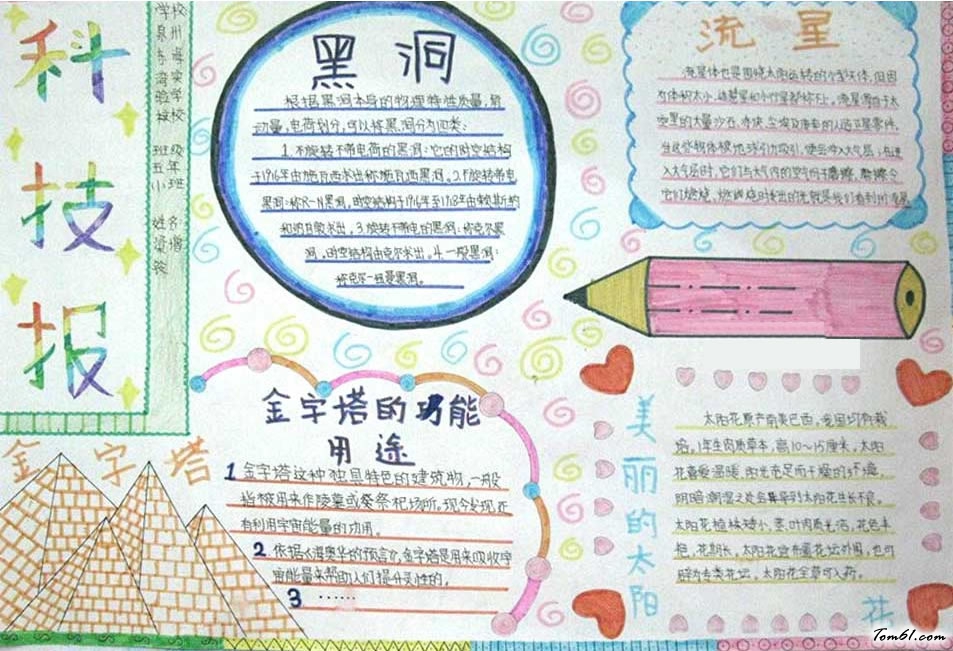 科
技
报
学校
泉州
实
验学
校
班级
五年
小班
姓名
黑 洞
根据黑洞本身的物理特性质量,角
动量,电荷划分,可以将黑洞分为四类:
1.不旋转不带电荷的黑洞:它的时空结构
于1916年由施瓦西求出称施瓦西黑洞。2.不旋转带电
黑洞:称R-N黑洞。时空结构于1916年至1918年由赖斯纳
和纳自敦求出。3.旋转不带电的黑洞:称克尔黑
洞。时空结构由克尔求出。4.一般黑洞:
称克尔-纽曼黑洞。
流 星
流星体也是围绕太阳运转的个别天体,但因
为体积太小,
星里的大量沙石、
入大气层时,它们与大气内的空气份子磨擦,磨擦令
它们燃烧,
金字塔的功能
用途
1 金字塔这种独具特色的建筑物,一般
当被用来作陵墓或祭祭祀场所。现今发现还
有利用宇宙能量的功用。
2.依据《海奥华的预言》,金字塔是用来吸收宇
宙能量来帮助人们提升灵性的。
3 ……
金 字 塔
美
丽
的
太
阳
花
太阳花原产南美巴西,我国均有栽
培。1年生肉质草本,高10~15厘米。太阳
花喜爱温暖、阳光充足而干燥的环境,
阴暗潮湿之处会导致太阳花生长不良。
太阳花植株矮小,茎、叶肉质光洁,花色丰
艳,花期长,太阳花宜布置花坛外围,也可
辟为专类花坛。太阳花全草可入药。
Tom61.com